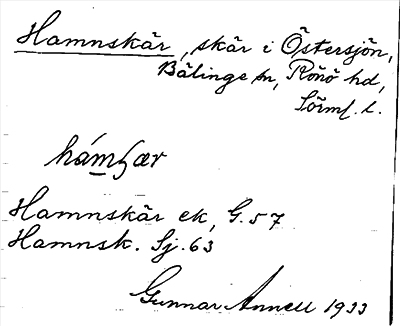 Hamnskär, skär i Östersjön,
Bälinge sn, Rönö hd,
Sörml. l.
hámʂær
Hamnskär ek, G.57
Hamnsk. Sj.63
Gunnar Annell 1933